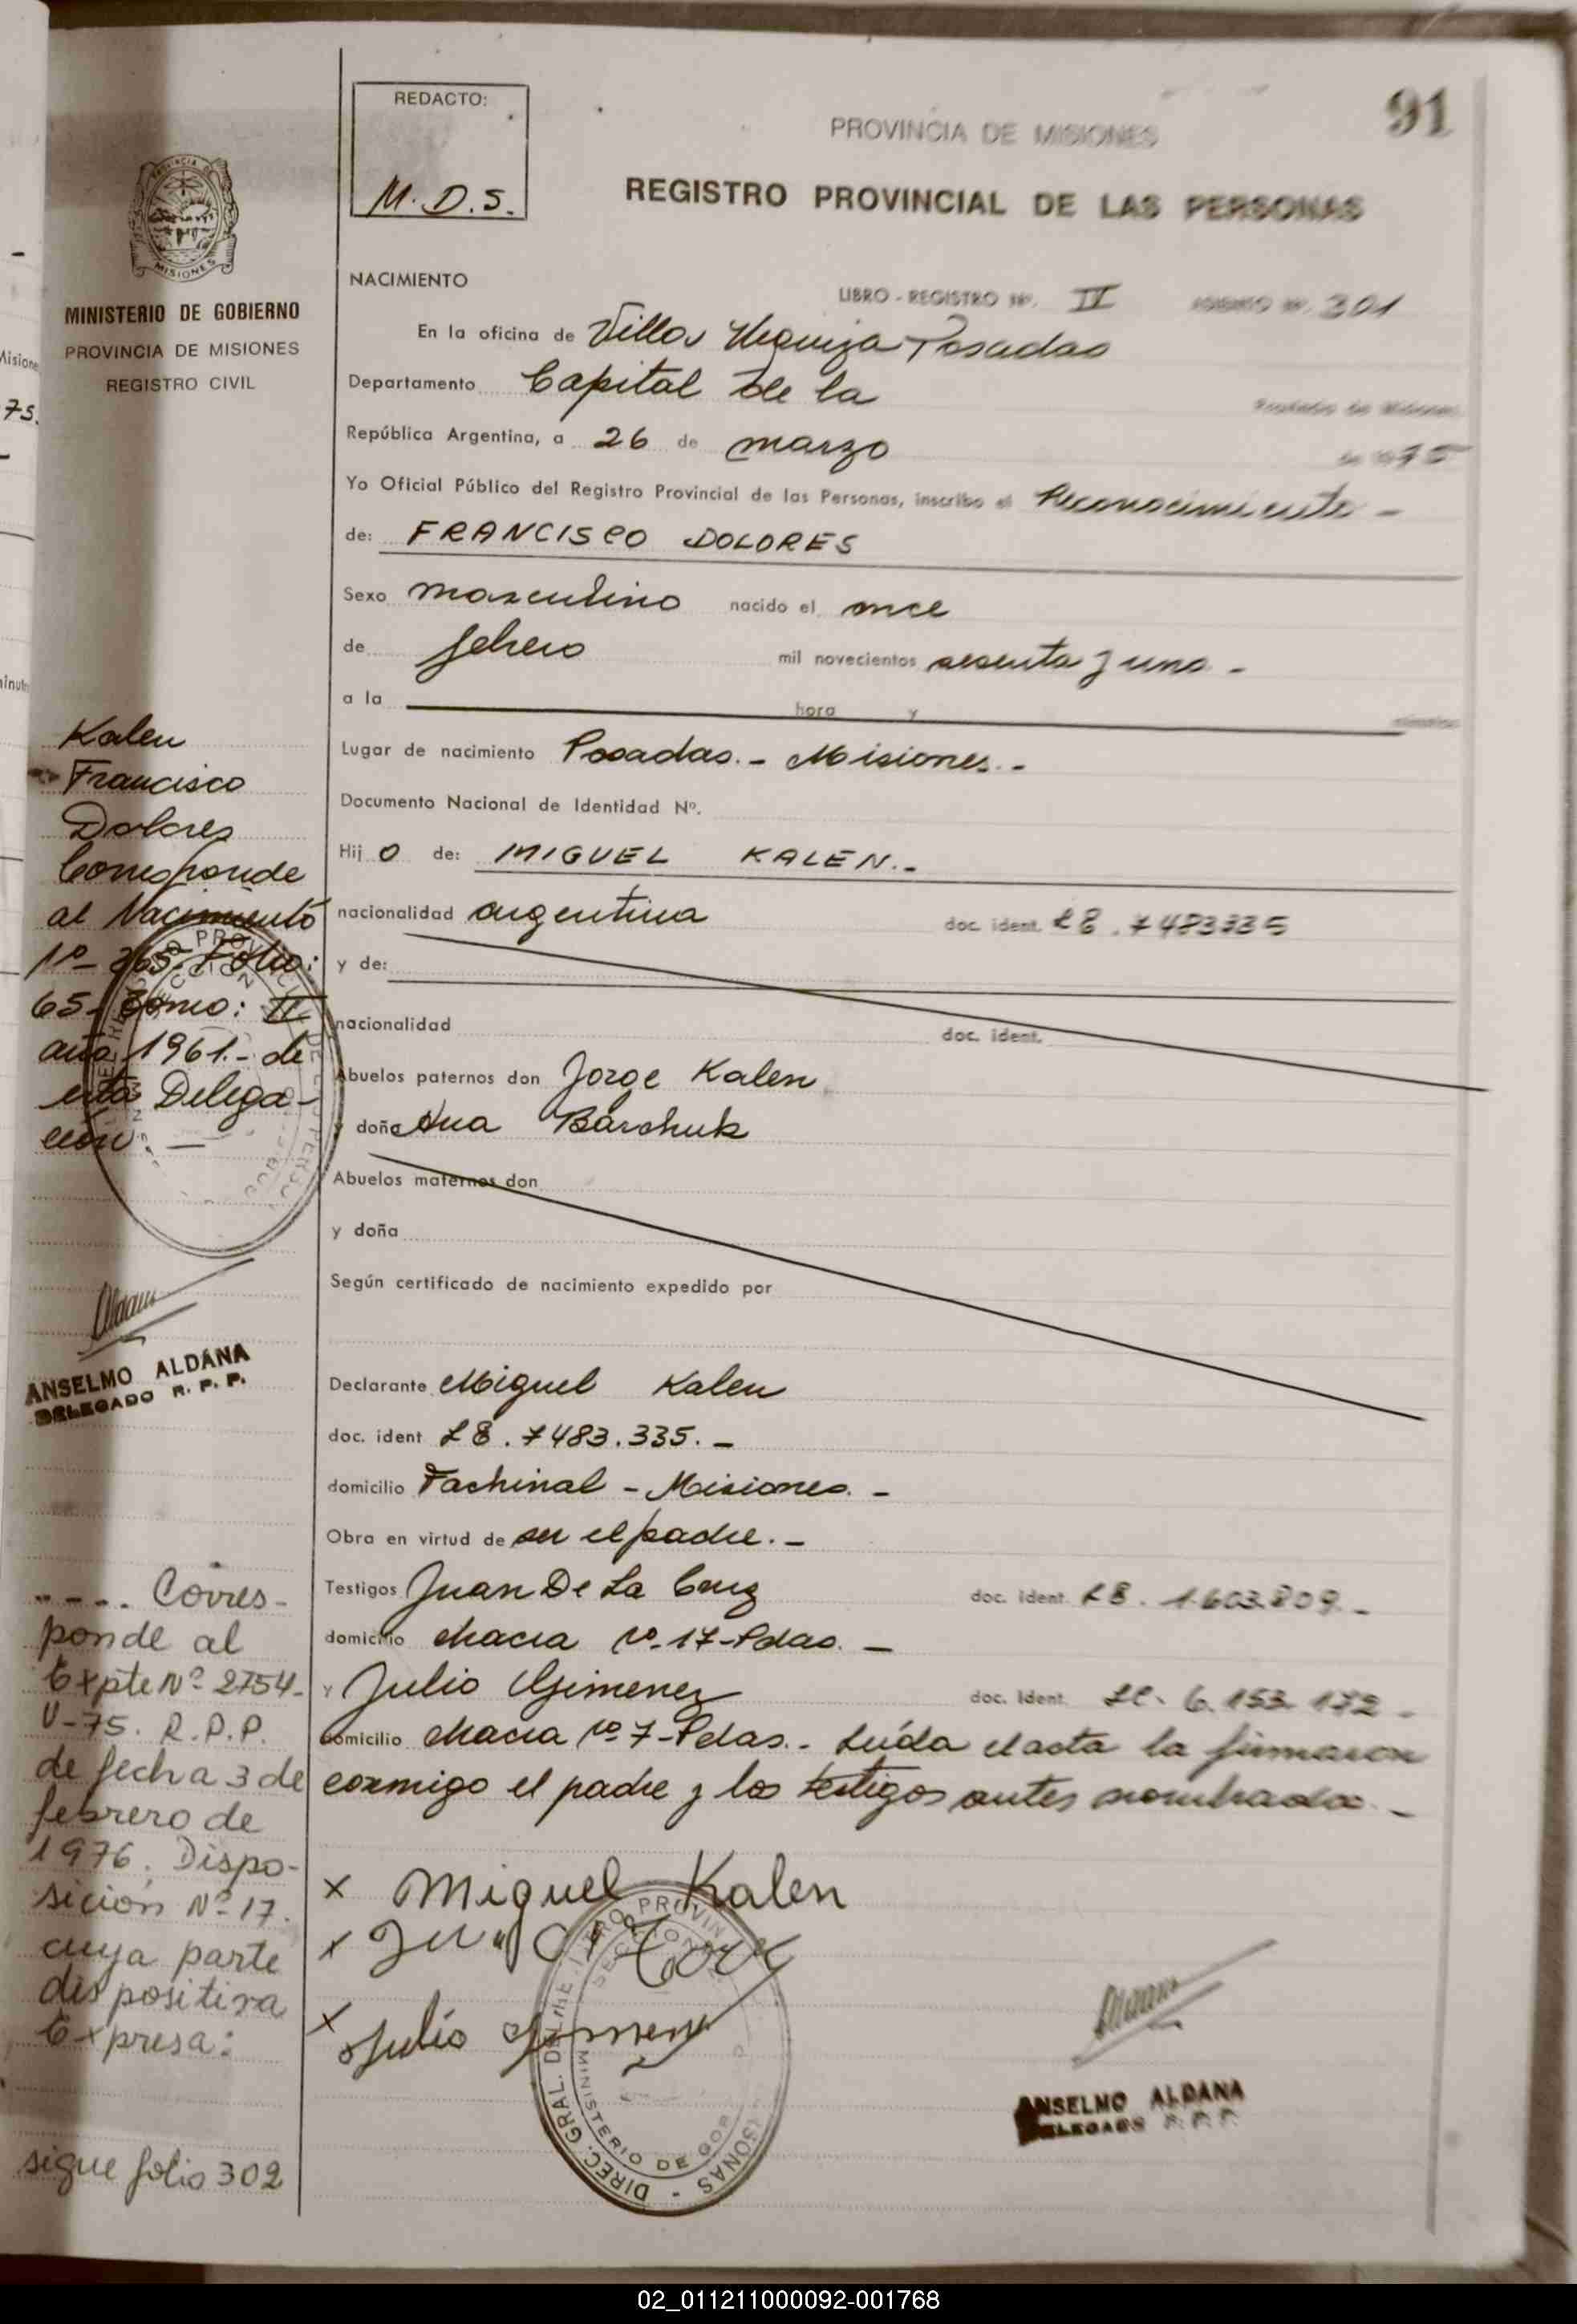 91
REDACTO:
M. D. S.
PROVINCIA DE MISIONES
REGISTRO PROVINCIAL DE LAS PERSONAS
PROVINCIA DE
MISIONES
MINISTERIO DE GOBIERNO
PROVINCIA DE MISIONES
REGISTRO CIVIL
NACIMIENTO
LIBRO - REGISTRO Nº. IV 301
En la oficina de Villa Urquiza Posadas
Departamento Capital de la Provincia de Misiones
República Argentina, a 26 de marzo de 1975
Yo Oficial Público del Registro Provincial de las Personas, inscribo el Reconocimiento -
de: FRANCISCO DOLORES
Sexo masculino nacido el once
de febrero mil novecientos sesenta y uno -
a la hora y minutos
Lugar de nacimiento Posadas. - Misiones. -
Documento Nacional de Identidad Nº.
Hij o de: MIGUEL KALEN. -
nacionalidad argentina doc. ident. LE. 7483335
y de:
nacionalidad doc. ident.
Abuelos paternos don Jorge Kalen
y doña Ana Barchuk
Abuelos maternos don
y doña
Según certificado de nacimiento expedido por
Declarante Miguel Kalen
doc. ident LE. 7483.335. -
domicilio Fachinal - Misiones. -
Obra en virtud de ser el padre. -
Testigos Juan De La Cruz doc. ident. LE. 1.603.809. -
domicilio chacra Nº 17 - Pdas. -
y Julio Gimenez doc. ident. LE. 6.153.172 -
domicilio chacra Nº 7 - Pdas. - Leída el acta la firmaron
conmigo el padre y los testigos antes nombrados. -
x Miguel Kalen
x
x Julio Gimenez
DIREC. GRAL. DEL REGISTRO PROVINCIAL PERSONAS -
MINISTERIO DE GOB
ANSELMO ALDANA
DELEGADO R. P. P.
Kalen
Francisco
Dolores
Corresponde
al Nacimiento
Nº 265. Folio:
65. Tomo: II
año 1961. - de
esta Delega-
ción. -
ANSELMO ALDANA
DELEGADO R. P. P.
---. Corres-
ponde al
Expte Nº 2754-
V-75. R.P.P.
de fecha 3 de
febrero de
1976. Dispo-
sición Nº 17.
cuya parte
dispositiva
Expresa:
sigue folio 302
Misione
75.
minuto
02_011211000092-001768